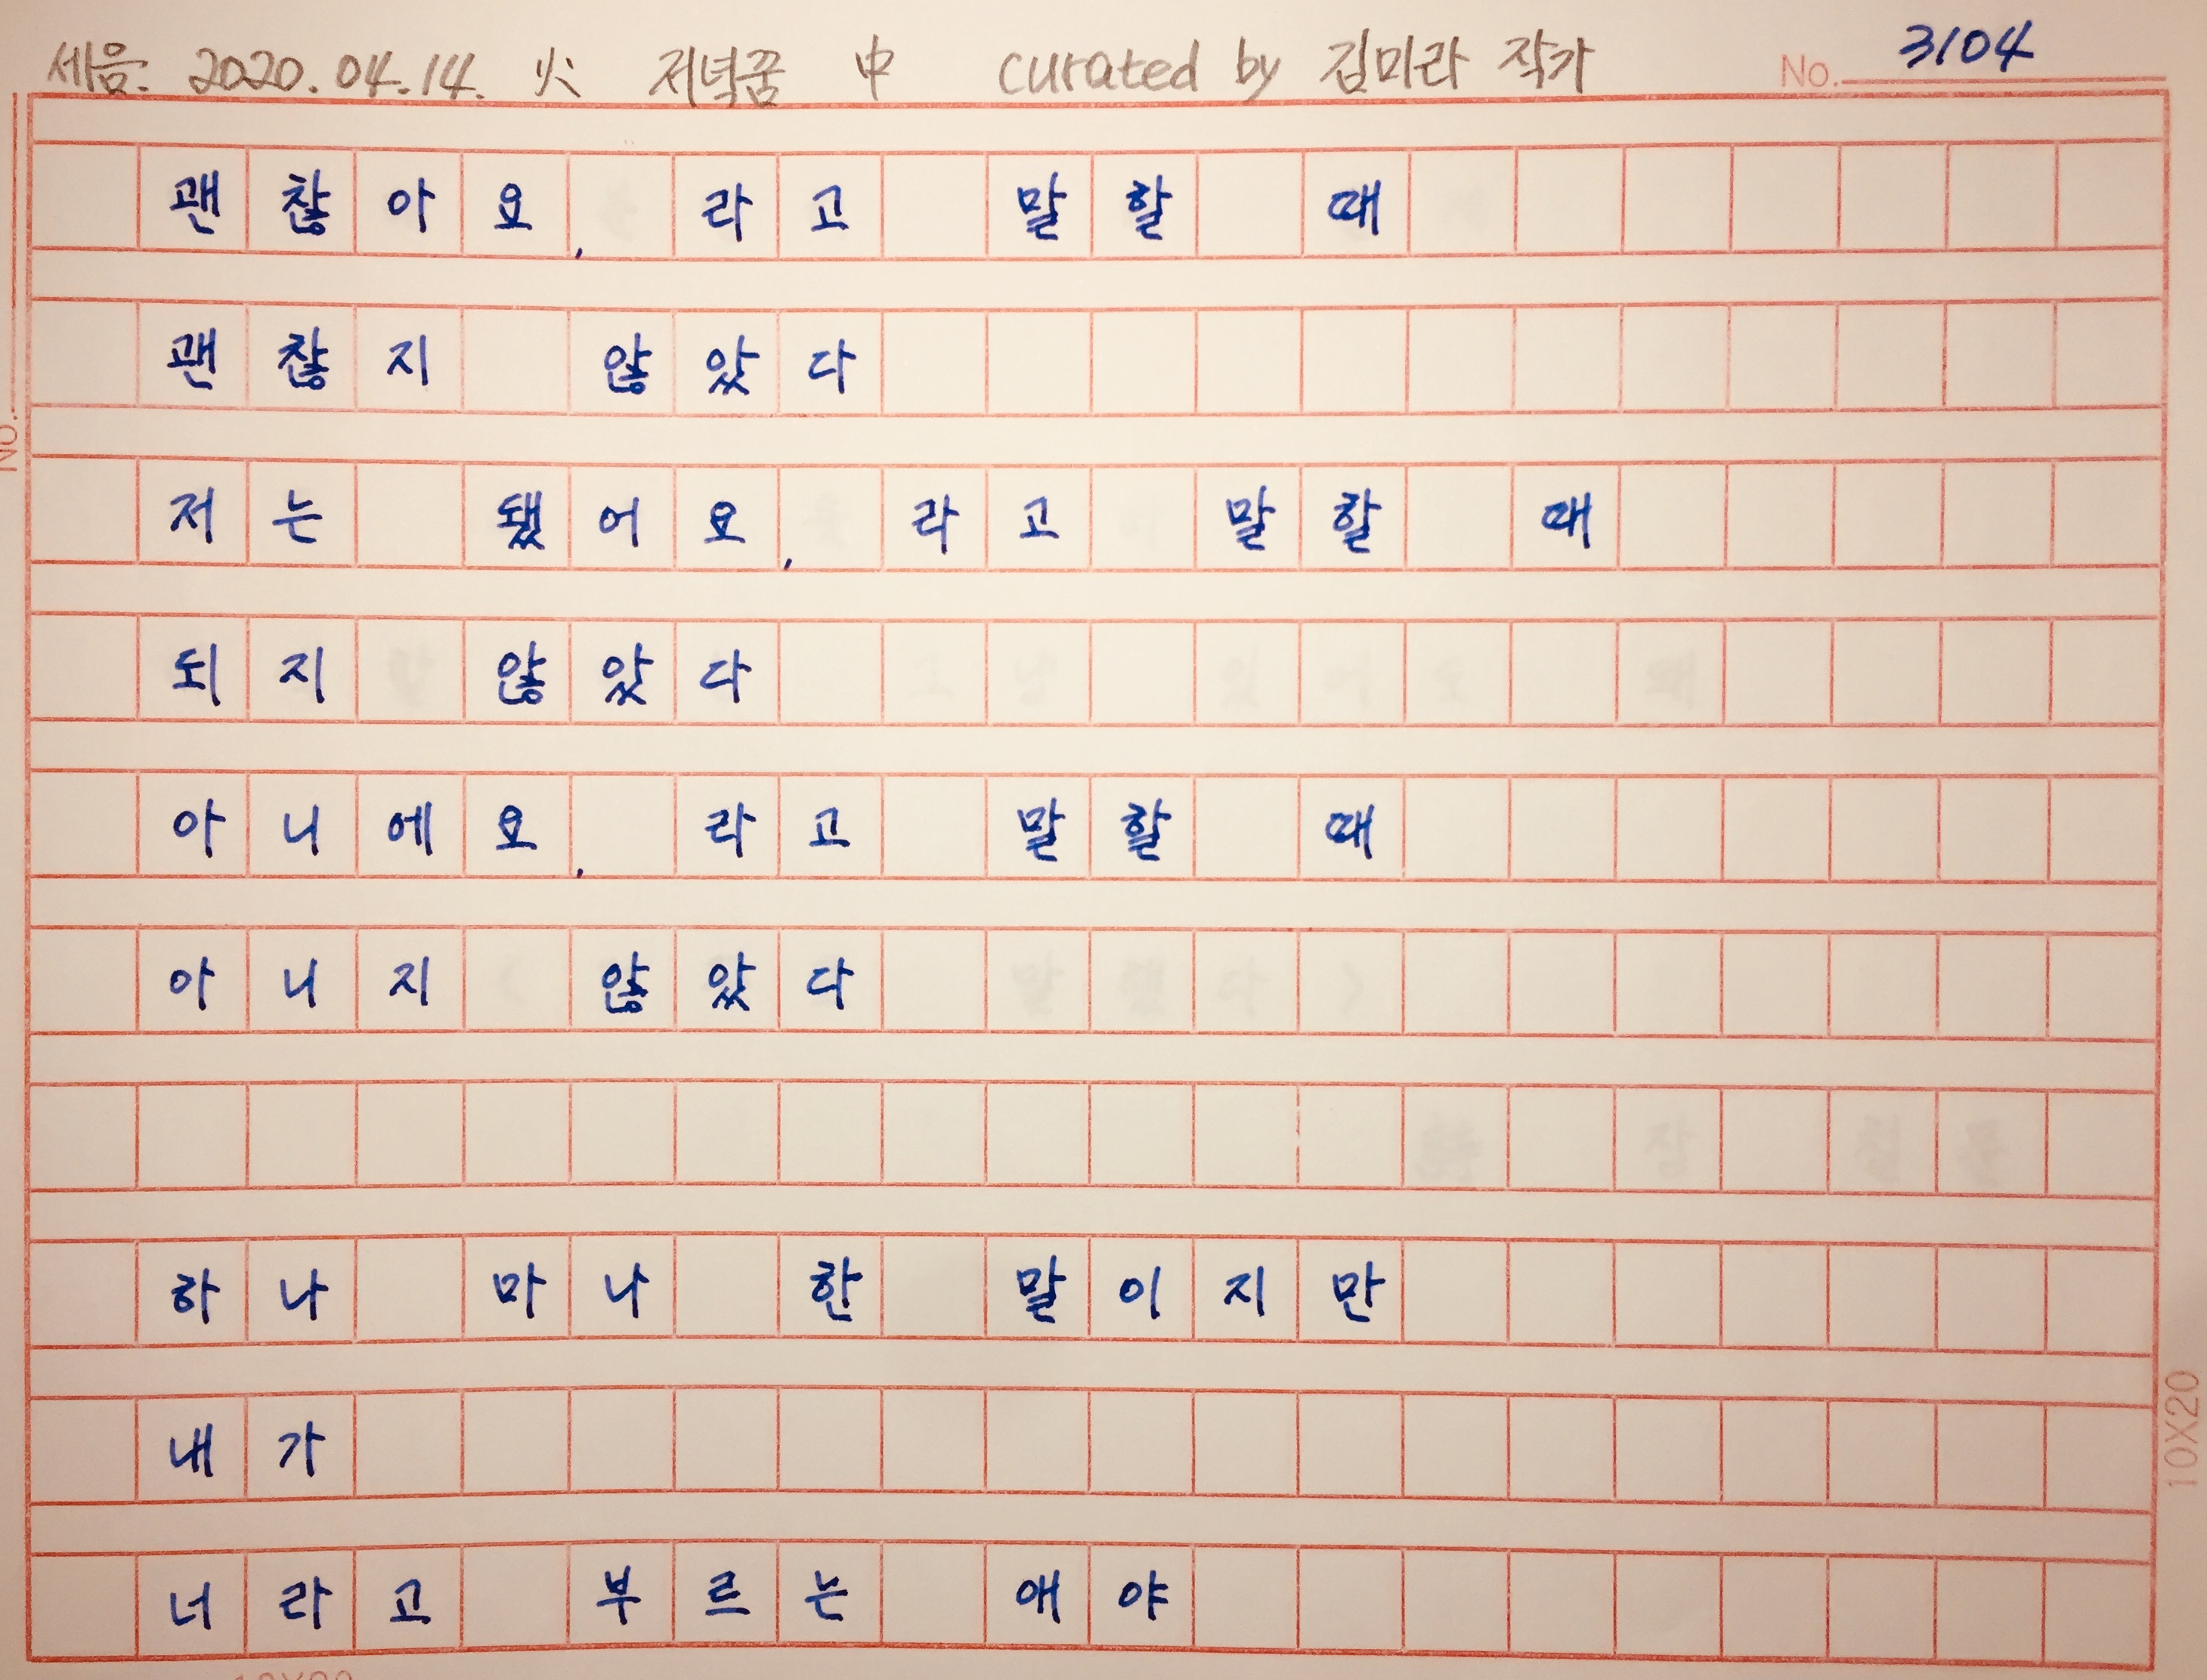 세음: 2020.04.14. 火 저녁꿈 中 curated by 김미라 작가 No. 3104
괜찮아요, 라고 말할 때
괜찮지 않았다
저는 됐어요, 라고 말할 때
되지 않았다
아니에요, 라고 말할 때
아니지 않았다
하나 마나 한 말이지만
내가
너라고 부르는 애야
No.
10X20